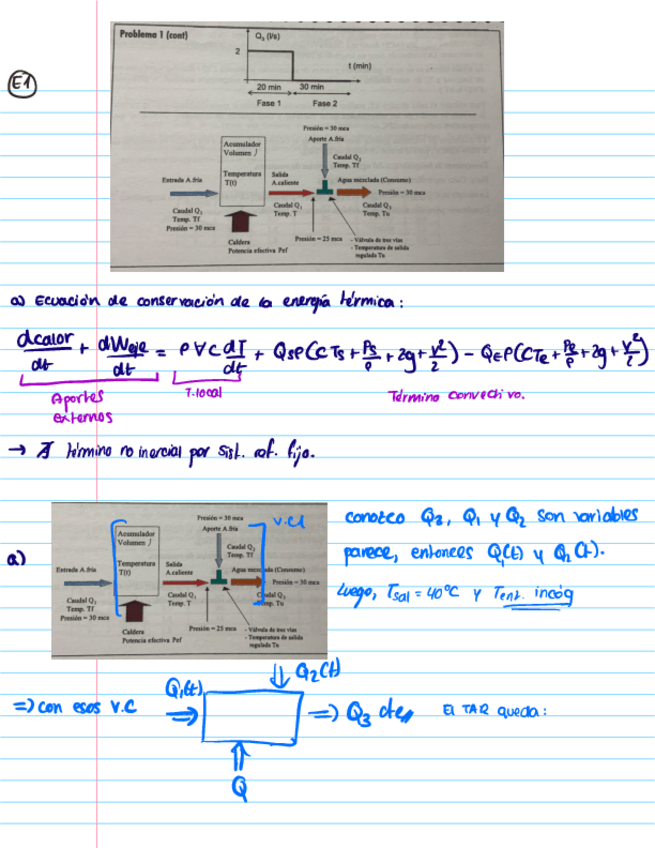 E1
Problema 1 (cont)
Q₃ (l/s)
2
t (min)
20 min 30 min
Fase 1 Fase 2
Presión = 30 mca
Aporte A.fria
Acumulador
Volumen
Caudal Q₂
Temp. Tf
Temperatura
T(t)
Salida
A.caliente
Agua mezclada (Consumo)
Entrada A.fria
Presión = 30 mca
Caudal Q₁
Temp. Tf
Presión = 30 mca
Caudal Q₁
Temp. T
Caudal Q₃
Temp. Tu
Caldera
Potencia efectiva Pef
Presión = 25 mca
- Válvula de tres vías
- Temperatura de salida
regulada Tu
a) Ecuación de conservación de la energía térmica:
dcalor/dt + dWeje/dt = ρ∀C dT/dt + Qsρ(CTs + Ps/ρ + zg + v²/2) - QEρ(CTe + Pe/ρ + zg + v²/2)
Aportes externos
T. local
Término convectivo.
→ ∄ término no inercial por sist. ref. fijo.
a)
Presión = 30 mca
Aporte A.fria
V.C1
Acumulador
Volumen
Caudal Q₂
Temp. Tf
Temperatura
T(t)
Salida
A.caliente
Agua mezclada (Consumo)
Entrada A.fria
Presión = 30 mca
Caudal Q₁
Temp. Tf
Presión = 30 mca
Caudal Q₁
Temp. T
Caudal Q₃
Temp. Tu
Caldera
Potencia efectiva Pef
Presión = 25 mca
- Válvula de tres vías
- Temperatura de salida
regulada Tu
conozco Q₃, Q₁ y Q₂ son variables
parece, entonces Q₁(t) y Q₂(t).
Luego, Tsal = 40°C y Tent. incóg
=> con esos V.C
Q₁(t)
Q₂(t)
=> Q₃ cte
El TAR queda:
Q